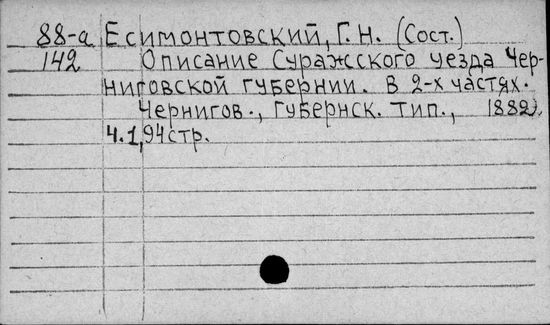 88-а Есимонтовский, Г. Н. (Сост.)
142 Описание Суражского уезда Чер-
ниговской губернии. В 2-х частях.
Чернигов., Губернск. тип., 1882.
Ч.1, 94 стр.